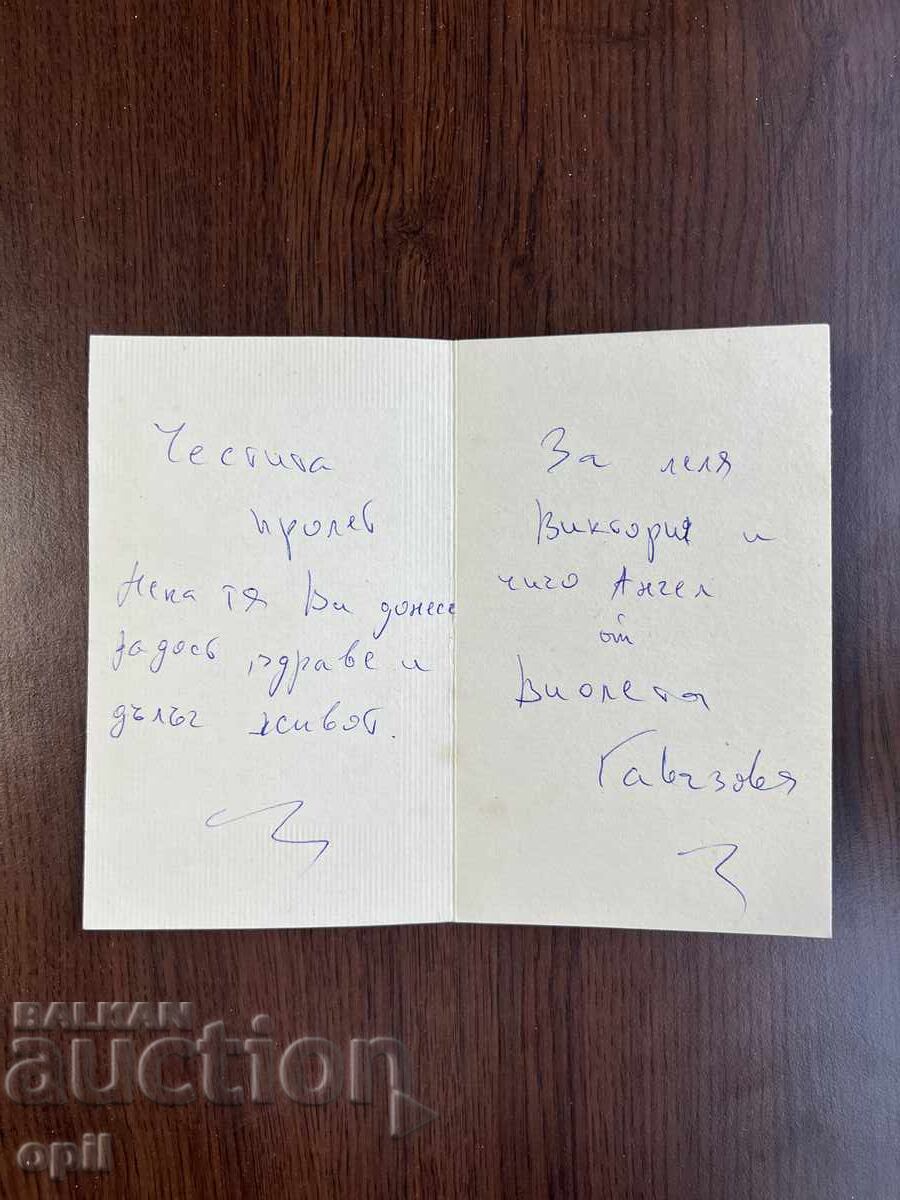 Честита
пролет
Нека тя Ви донесе
радост, здраве и
дълъг живот.
За леля
Виктория и
чичо Ангел
от
Виолета
Гавазова
BALKAN
auction
opil